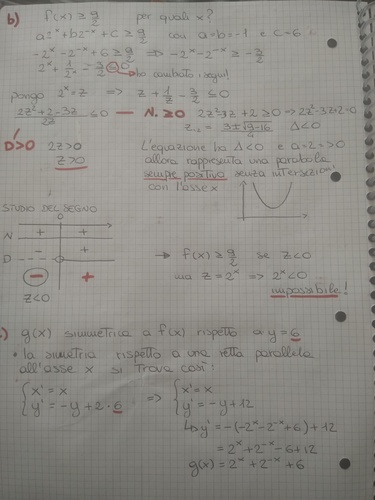 b) f(x) ≥ 9/2 per quali x?
a2ˣ + b2⁻ˣ + c ≥ 9/2 con a=b=-1 e c=6
-2ˣ - 2⁻ˣ + 6 ≥ 9/2 ⇒ -2ˣ - 2⁻ˣ ≥ -3/2
2ˣ + 1/2ˣ - 3/2 ≤ 0 → ho cambiato i segni!
pongo 2ˣ = z ⇒ z + 1/z - 3/2 ≤ 0
2z²+2-3z/2z ≤ 0 — N. ≥ 0 2z²-3z+2 ≥ 0 ⇒ 2z²-3z+2=0
z₁,₂ = 3±√9-16 Δ<0
D > 0 2z > 0
z > 0
L'equazione ha Δ<0 e a=2 > 0
allora rappresenta una parabola
sempre positiva senza intersezioni
con l'asse x
STUDIO DEL SEGNO
0
N + +
D - +
- +
z < 0
x
→ f(x) ≥ 9/2 se z<0
ma z = 2ˣ ⇒ 2ˣ<0
impossibile!
c) g(x) simmetrica a f(x) rispetto a y = 6
• la simmetria rispetto a una retta parallela
all'asse x si trova così:
{ x' = x
y' = -y + 2·6 ⇒ { x' = x
y' = -y + 12
↳ y' = -(-2ˣ - 2⁻ˣ + 6) + 12
= 2ˣ + 2⁻ˣ - 6 + 12
g(x) = 2ˣ + 2⁻ˣ + 6